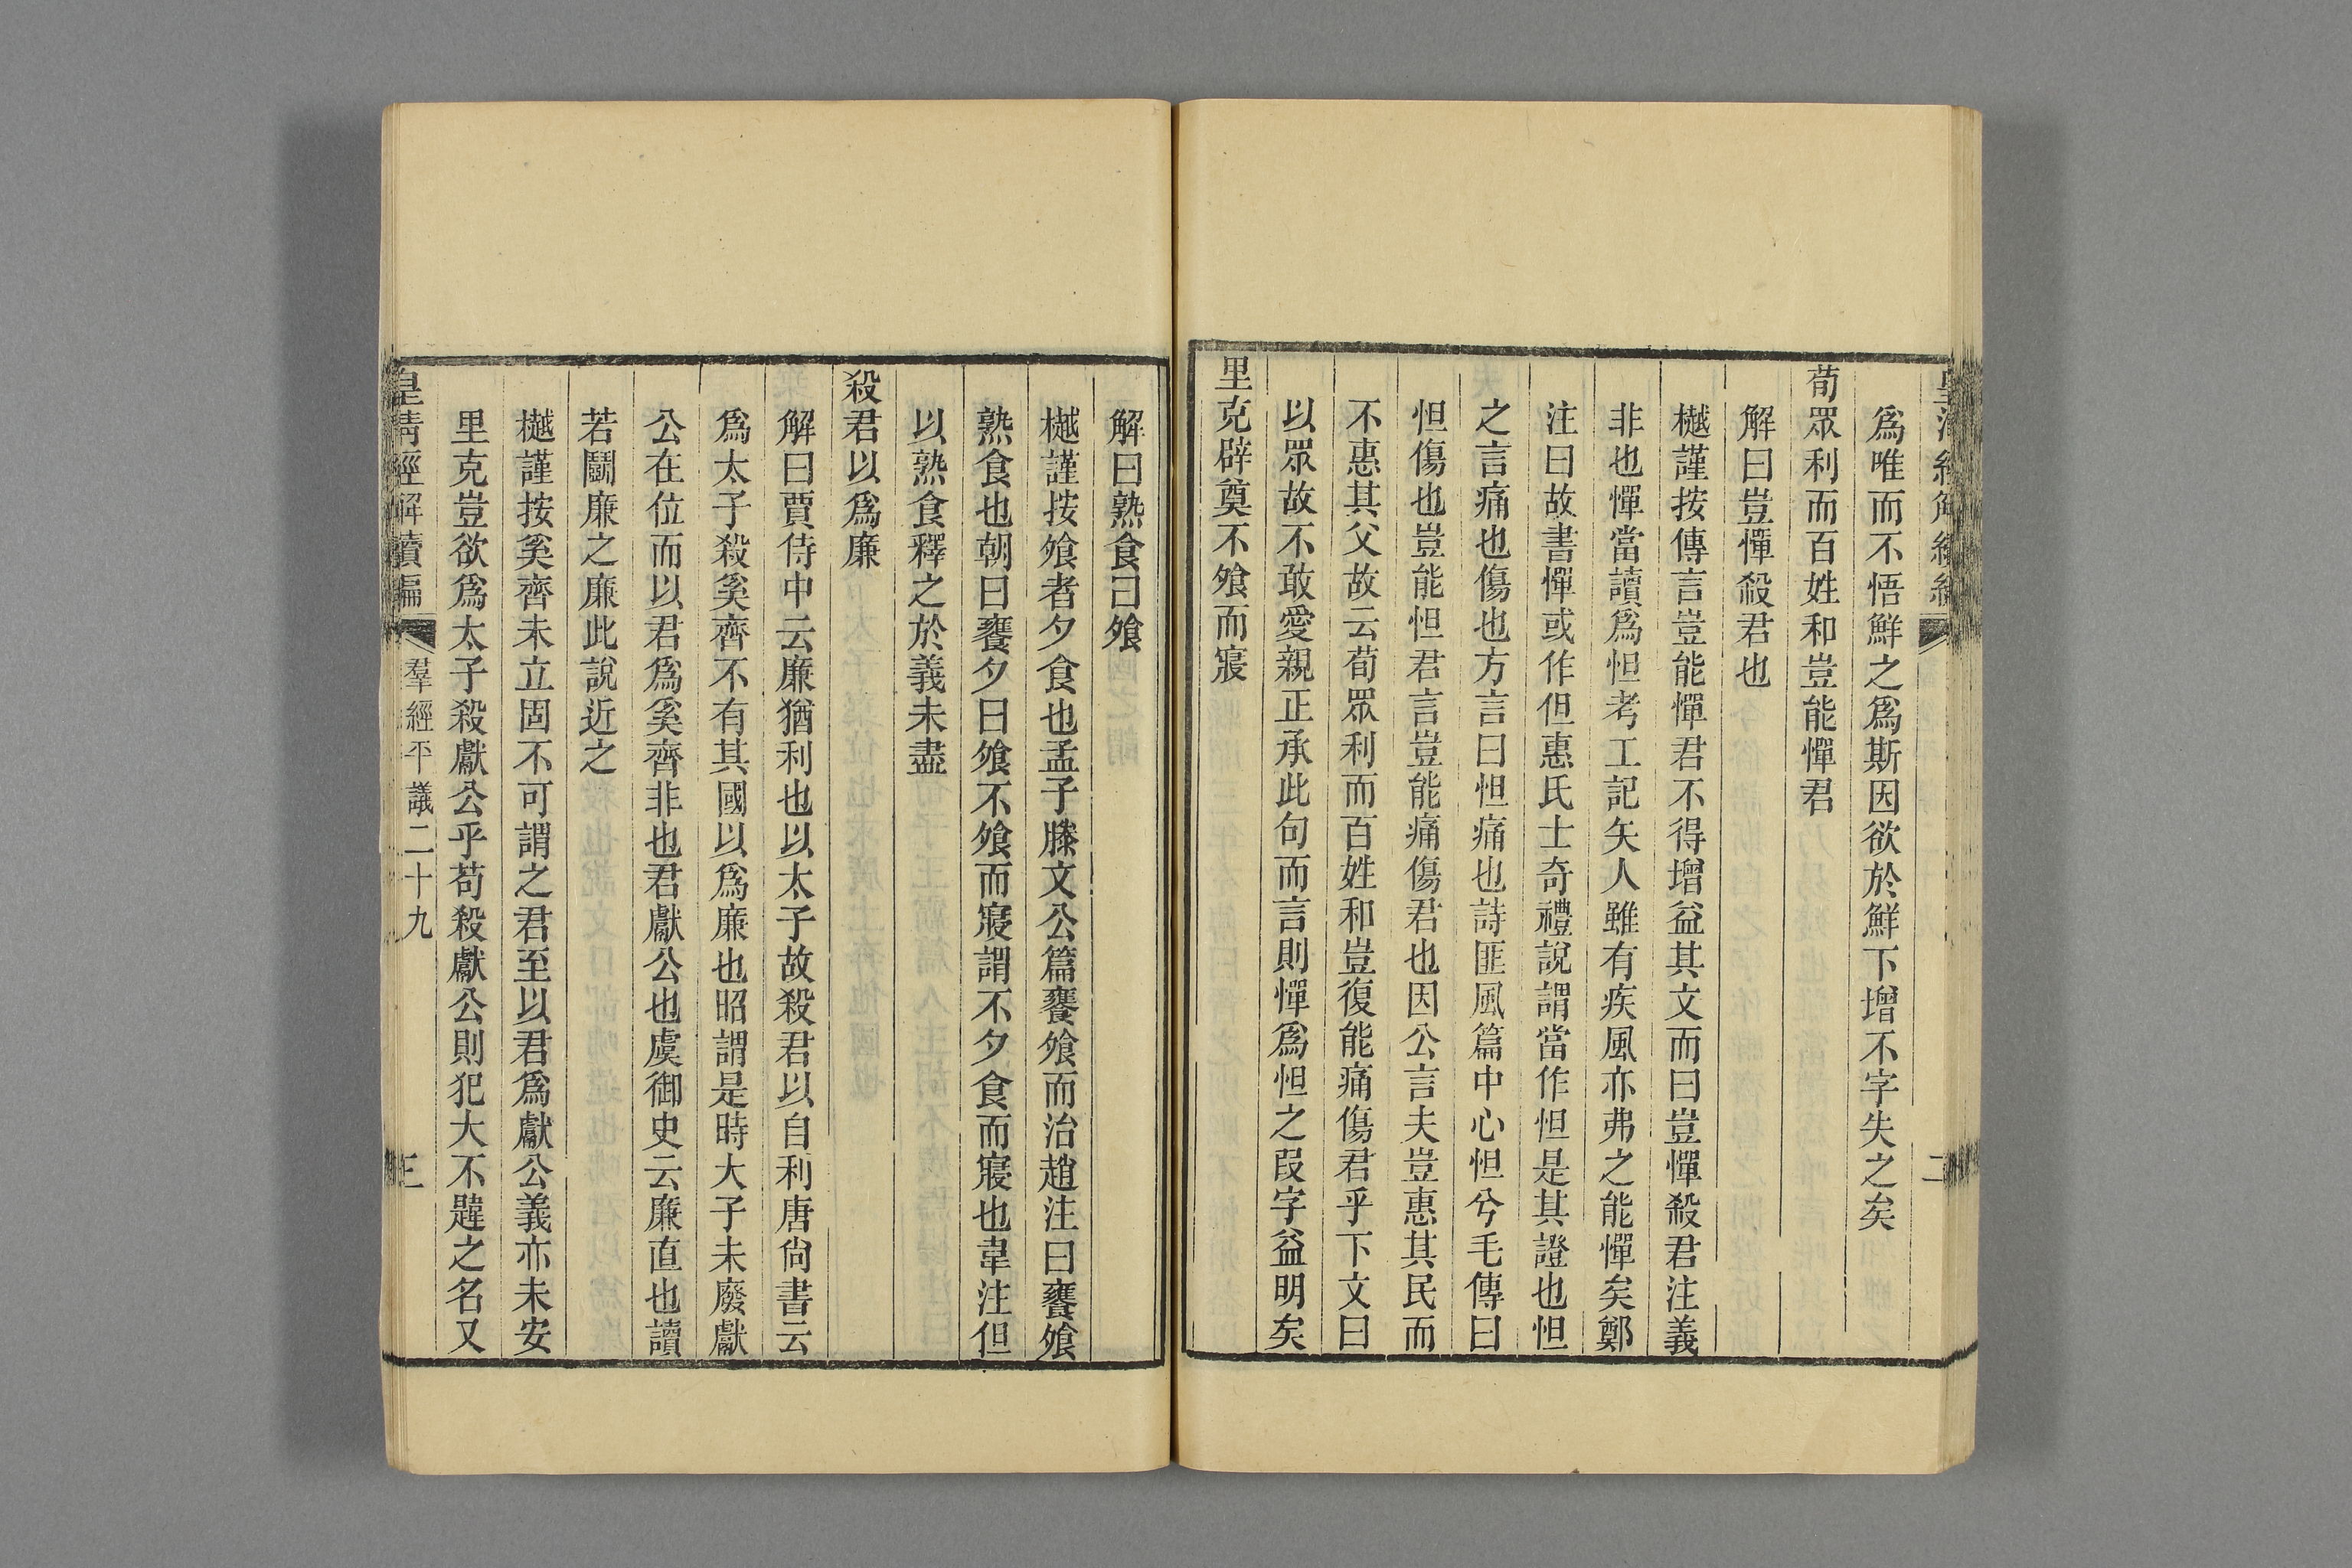 爲唯而不悟鮮之爲斯因欲於鮮下增不字失之矣
荀眾利而百姓和豈能憚君
解曰豈憚殺君也
樾謹按傳言豈能憚君不得增益其文而曰豈憚殺君注義
非也憚當讀爲怛考工記矢人雖有疾風亦弗之能憚矣鄭
注曰故書憚或作但惠氏士奇禮說謂當作怛是其證也怛
之言痛也傷也方言曰怛痛也詩匪風篇中心怛兮毛傳曰
怛傷也豈能怛君言豈能痛傷君也因公言夫豈惠其民而
不惠其父故云荀眾利而百姓和豈復能痛傷君乎下文曰
以眾故不敢愛親正承此句而言則憚爲怛之叚字益明矣
里克辟奠不飧而寢
解曰熟食曰飧
樾謹按飧者夕食也孟子滕文公篇饔飧而治趙注曰饔飧
熟食也朝曰饔夕曰飧不飧而寢謂不夕食而寢也韋注但
以熟食釋之於義未盡
殺君以爲廉
解曰賈侍中云廉猶利也以太子故殺君以自利唐尙書云
爲太子殺奚齊不有其國以爲廉也昭謂是時大子未廢獻
公在位而以君爲奚齊非也君獻公也虞御史云廉直也讀
若鬭廉之廉此說近之
樾謹按奚齊未立固不可謂之君至以君爲獻公義亦未安
里克豈欲爲太子殺獻公乎苟殺獻公則犯大不韙之名又
皇淸經解續編 羣經平議二十九 三